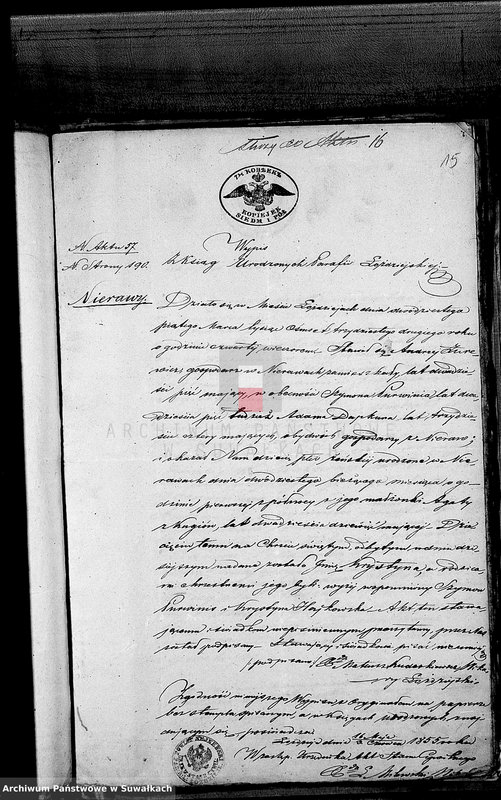 służy do Aktu 16
15
7½ КОПѢЕКЪ
KOPIEJEK
SIEDM I PÓŁ
Wypis
N. Aktu 57.
z Ksiąg Urodzonych Parafii Łoździejskiej
N. Strony 190.
Nierawy.
Działo się w Mieście Łoździejach dnia dwudziestego
piątego Marca tysiąc Ośmset trzydziestego drugiego roku
o godzinie czwartej wieczorem. Stawił się Andrzej
gospodarz w Nierawach zamieszkały lat dwadzieścia
pięć mający, w obecności Szymona lat dwa
dzieścia pięć tudzież Adama lat trzydzie
ści cztery mających, obydwóch gospodarzy z Nieraw;
i okazał Nam dziecię płci żeńskiej urodzone w Nie
rawach dnia dwudziestego bieżącego miesiąca o go
dzinie pierwszej z północy z jego małżonki Agaty
z lat dwadzieścia mającej. Dzie
cięciu temu na Chrzcie świętym odbytym w dniu dzi
siejszym nadane zostało Imię Krystyna, a rodzica
mi chrzestnemi jego byli wyżej wspomniony Szymon
i Krystyna Akt ten stawa
jącemu i świadkom niepiśmiennym przeczytany, przez Nas
został podpisany. Stawający i świadkowie pisać nie umieją
(podpisano) Xdz Mateusz
Zgodność niniejszego Wypisu z Oryginałem na papierze
bez stempla spisanym, a w księgach urodzonych znaj
dującym się, poświadcza
Łoździeje dnia Maja Czerwca 1855 roku
Urzędnika Akt Stanu Cywilnego
ARCHIWUM PAŃSTWOWE
Archiwum Państwowe w Suwałkach